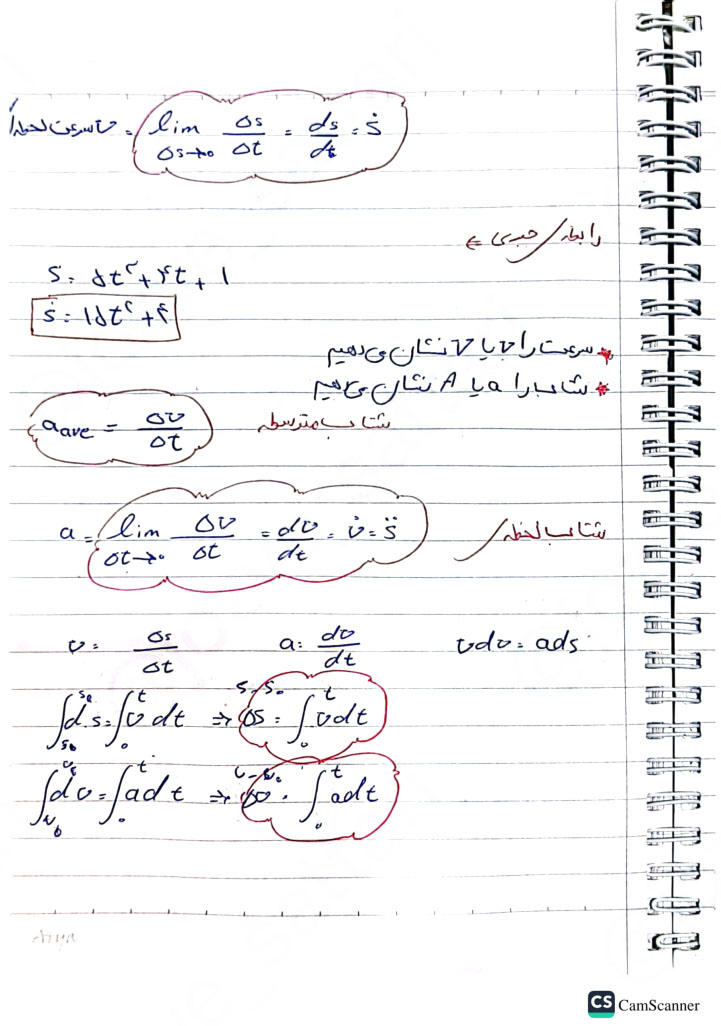 سرعت لحظه‌ای v = lim Δs→0 Δs/Δt = ds/dt = ṡ
رابطه جبری ←
s = ۵t³ + ۴t + ۱
ṡ = ۱۵t² + ۴
* سرعت را v یا V نشان می‌دهیم
* شتاب را a یا A نشان می‌دهیم
a ave = Δv/Δt شتاب متوسط
a = lim Δt→0 Δv/Δt = dv/dt = v̇ = s̈ شتاب لحظه‌ای
v = Δs/Δt a = dv/dt vdv = ads
∫ds = ∫₀ᵗ v dt ⇒ Δs = ∫₀ᵗ vdt
s - s₀
∫dv = ∫₀ᵗ adt ⇒ Δv = ∫₀ᵗ adt
v - v₀
Arya
CS CamScanner